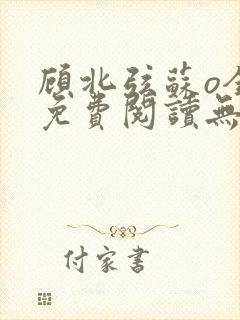 顾北弦蘇o全
免費閱讀無
付家書